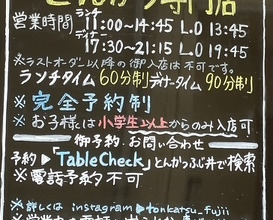 とんかつ専門店
営業時間 ランチ 11:00~14:45 L.O 13:45
ディナー 17:30~21:15 L.O 19:45
※ラストオーダー以降の御入店は不可です。
ランチタイム60分制 ディナータイム90分制
※完全予約制
※お子様は小学生以上からのみ入店可
御予約・お問い合わせ
予約▶「TableCheck」とんかつふじ井で検索
※電話予約不可
※詳しくは instagram▶tonkatsu_fujii